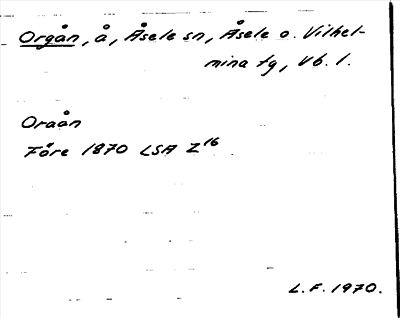 Orgån, å, Åsele sn, Åsele o. Vilhel-
mina tg, Vb. l.
Oraån
Före 1870 LSA Z16
L.F. 1970.